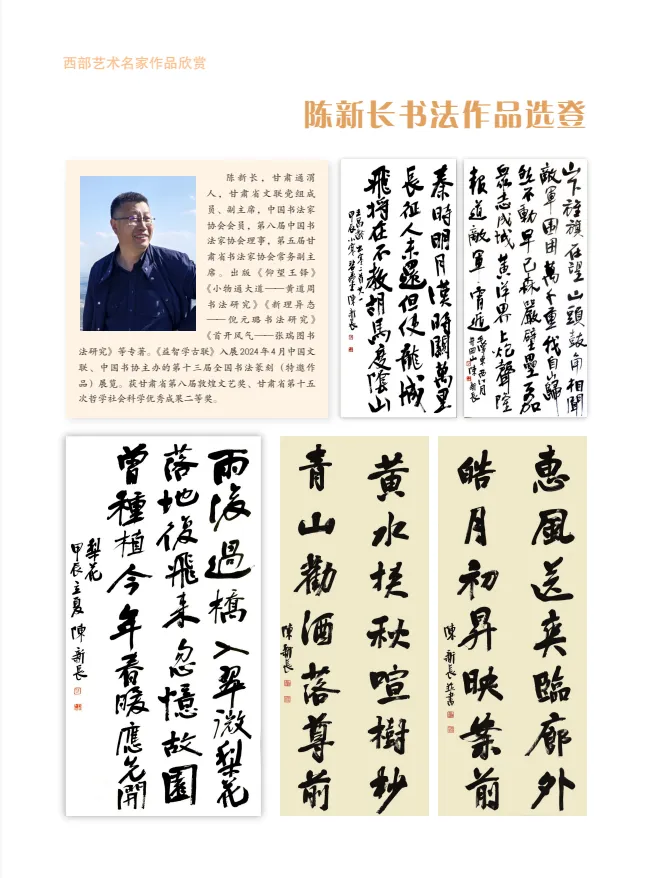 西部艺术名家作品欣赏
陈新长书法作品选登
陈新长，甘肃通渭
人，甘肃省文联党组成
员、副主席，中国书法家
协会会员，第八届中国书
法家协会理事，第五届甘
肃省书法家协会常务副主
席。出版《仰望王铎》
《小物通大道——黄道周
书法研究》《新理异态
——倪元璐书法研究》
《首开风气——张瑞图书
法研究》等专著。《益智学古联》入展2024年4月中国文
联、中国书协主办的第十三届全国书法篆刻（特邀作
品）展览。获甘肃省第八届敦煌文艺奖、甘肃省第十五
次哲学社会科学优秀成果二等奖。
秦時明月漢時關萬里
長征人未還但使龍城
飛將在不教胡馬度陰山
王昌齡出塞二首其一
甲辰小寒
陳新長
山下旌旗在望山頭鼓角相聞
敵軍圍困萬千重我自巋
然不動早已森嚴壁壘更
眾志成城黃洋界上炮聲隆
報道敵軍宵遁
毛澤東西江月
井岡山陳新長
雨後過橋入翠微梨花
落地復飛來忽憶故園
曾種植今年春暖應先開
梨花
甲辰立夏陳新長
黄水挾秋喧樹杪
青山勸酒落尊前
陳新長
惠風送爽臨廊外
皓月初昇映案前
陳新長並書